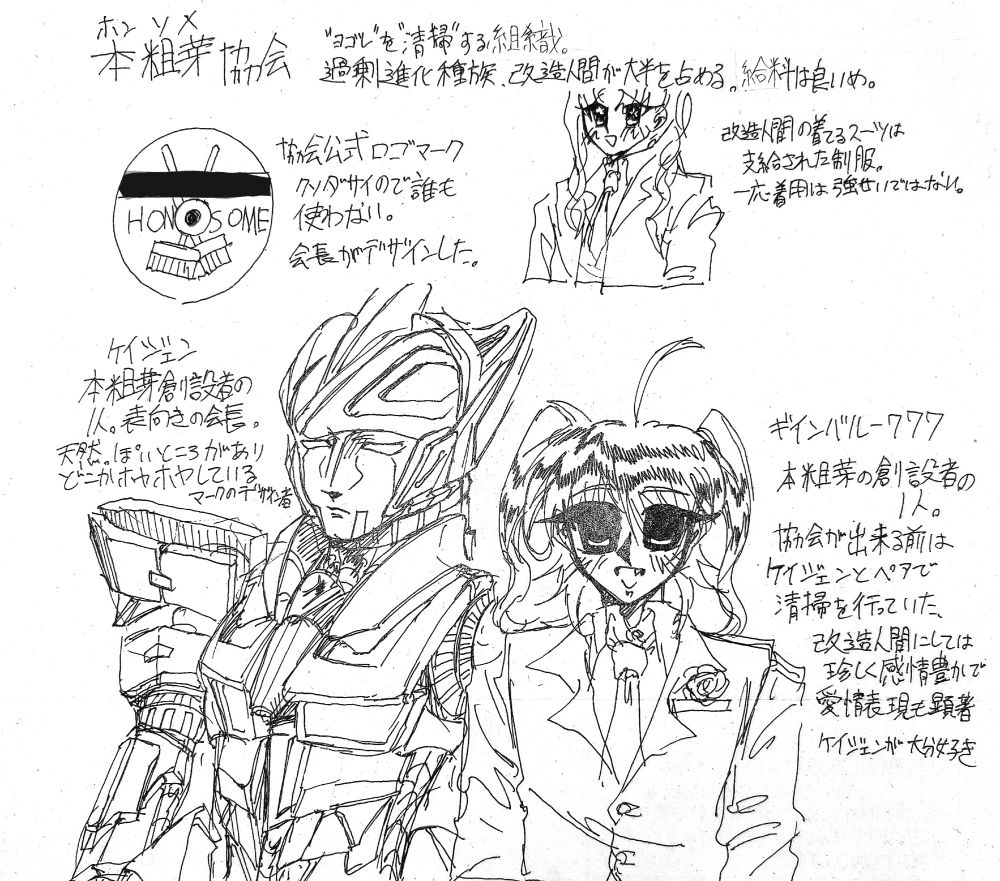 ホン ソメ
本粗芽協会
"ヨゴレ"を"清掃"する組織。
過剰進化種族、改造人間が大半を占める。給料は良いめ。
協会公式ロゴマーク
クソダサイので誰も
使わない。
会長がデザインした。
HONOSOME
改造人間の着てるスーツは
支給された制服。
一応着用は強せいではない。
ケイジェン
本粗芽創設者の
1人。表向きの会長。
天然っぽいところがあり
どこかホヤホヤしている
マークのデザイン者
ギインバルー777
本粗芽の創設者の
1人。
協会が出来る前は
ケイジェンとペアで
清掃を行っていた、
改造人間にしては
珍しく感情豊かで
愛情表現も顕著
ケイジェンが大分好き